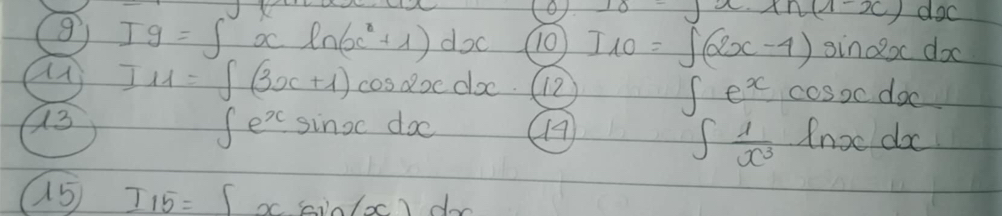 8 I8 = ∫ x ln(1-x) dx
9 I9 = ∫ x ln(x²+1) dx 10 I10 = ∫(2x-1) sin2x dx
11 I11 = ∫(3x+1)cos2x dx. 12 ∫ eˣ cosx dx
13 ∫eˣ sinx dx 14 ∫ 1/x³ lnx dx
15 I15 = ∫ x sin(x) dx